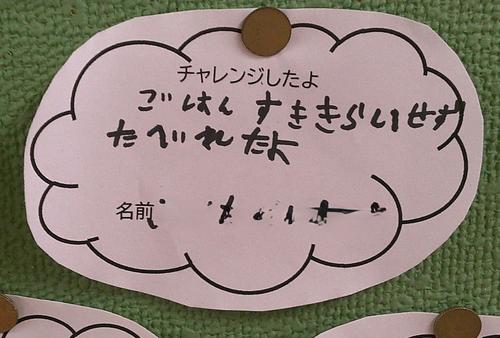 チャレンジしたよ
ごはん すききらいせず
たべれたよ
名前